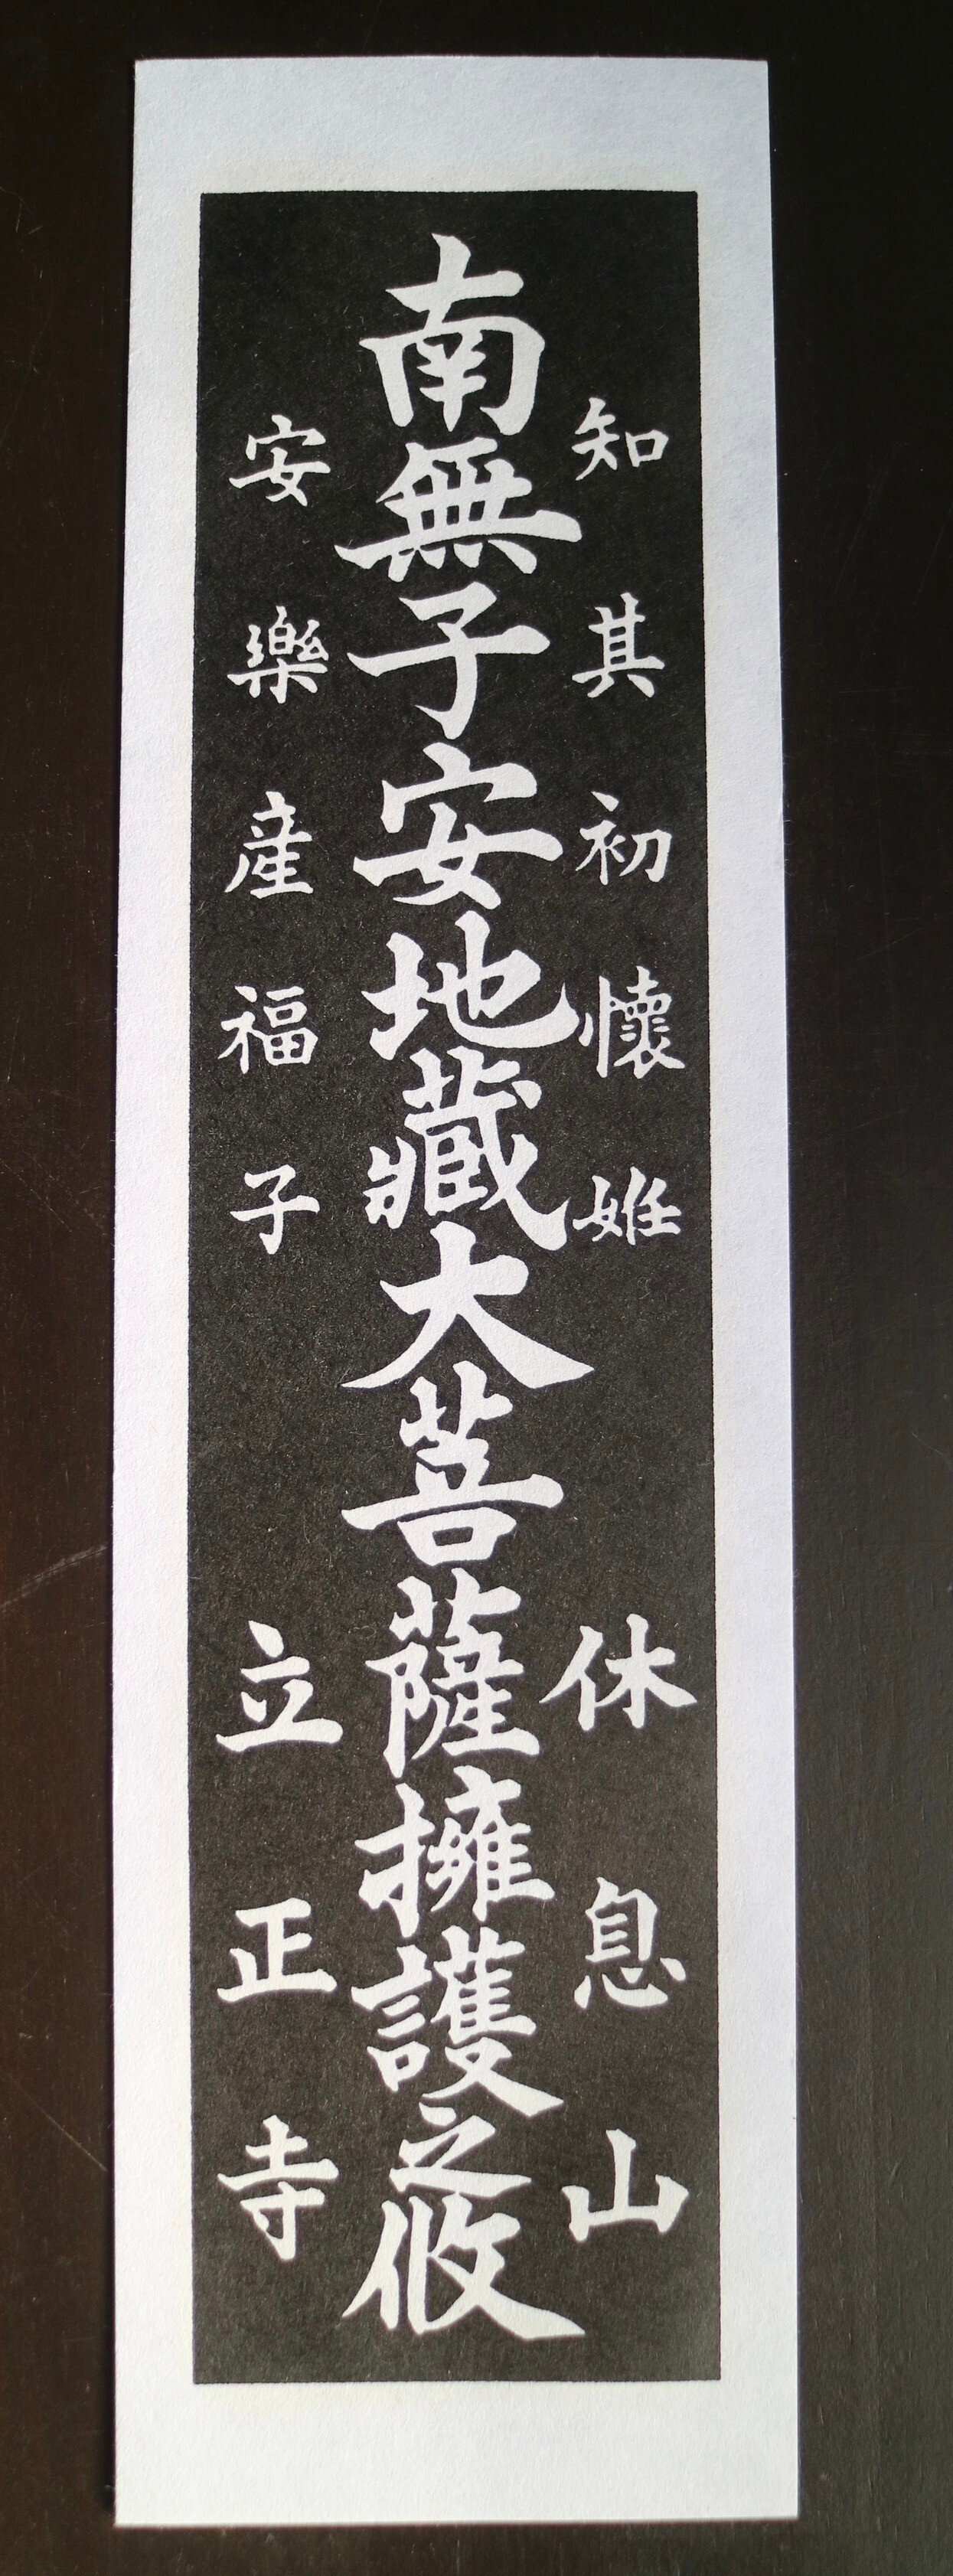 知其初懷姙 休息山
南無子安地藏大菩薩擁護之攸
安樂産福子 立正寺